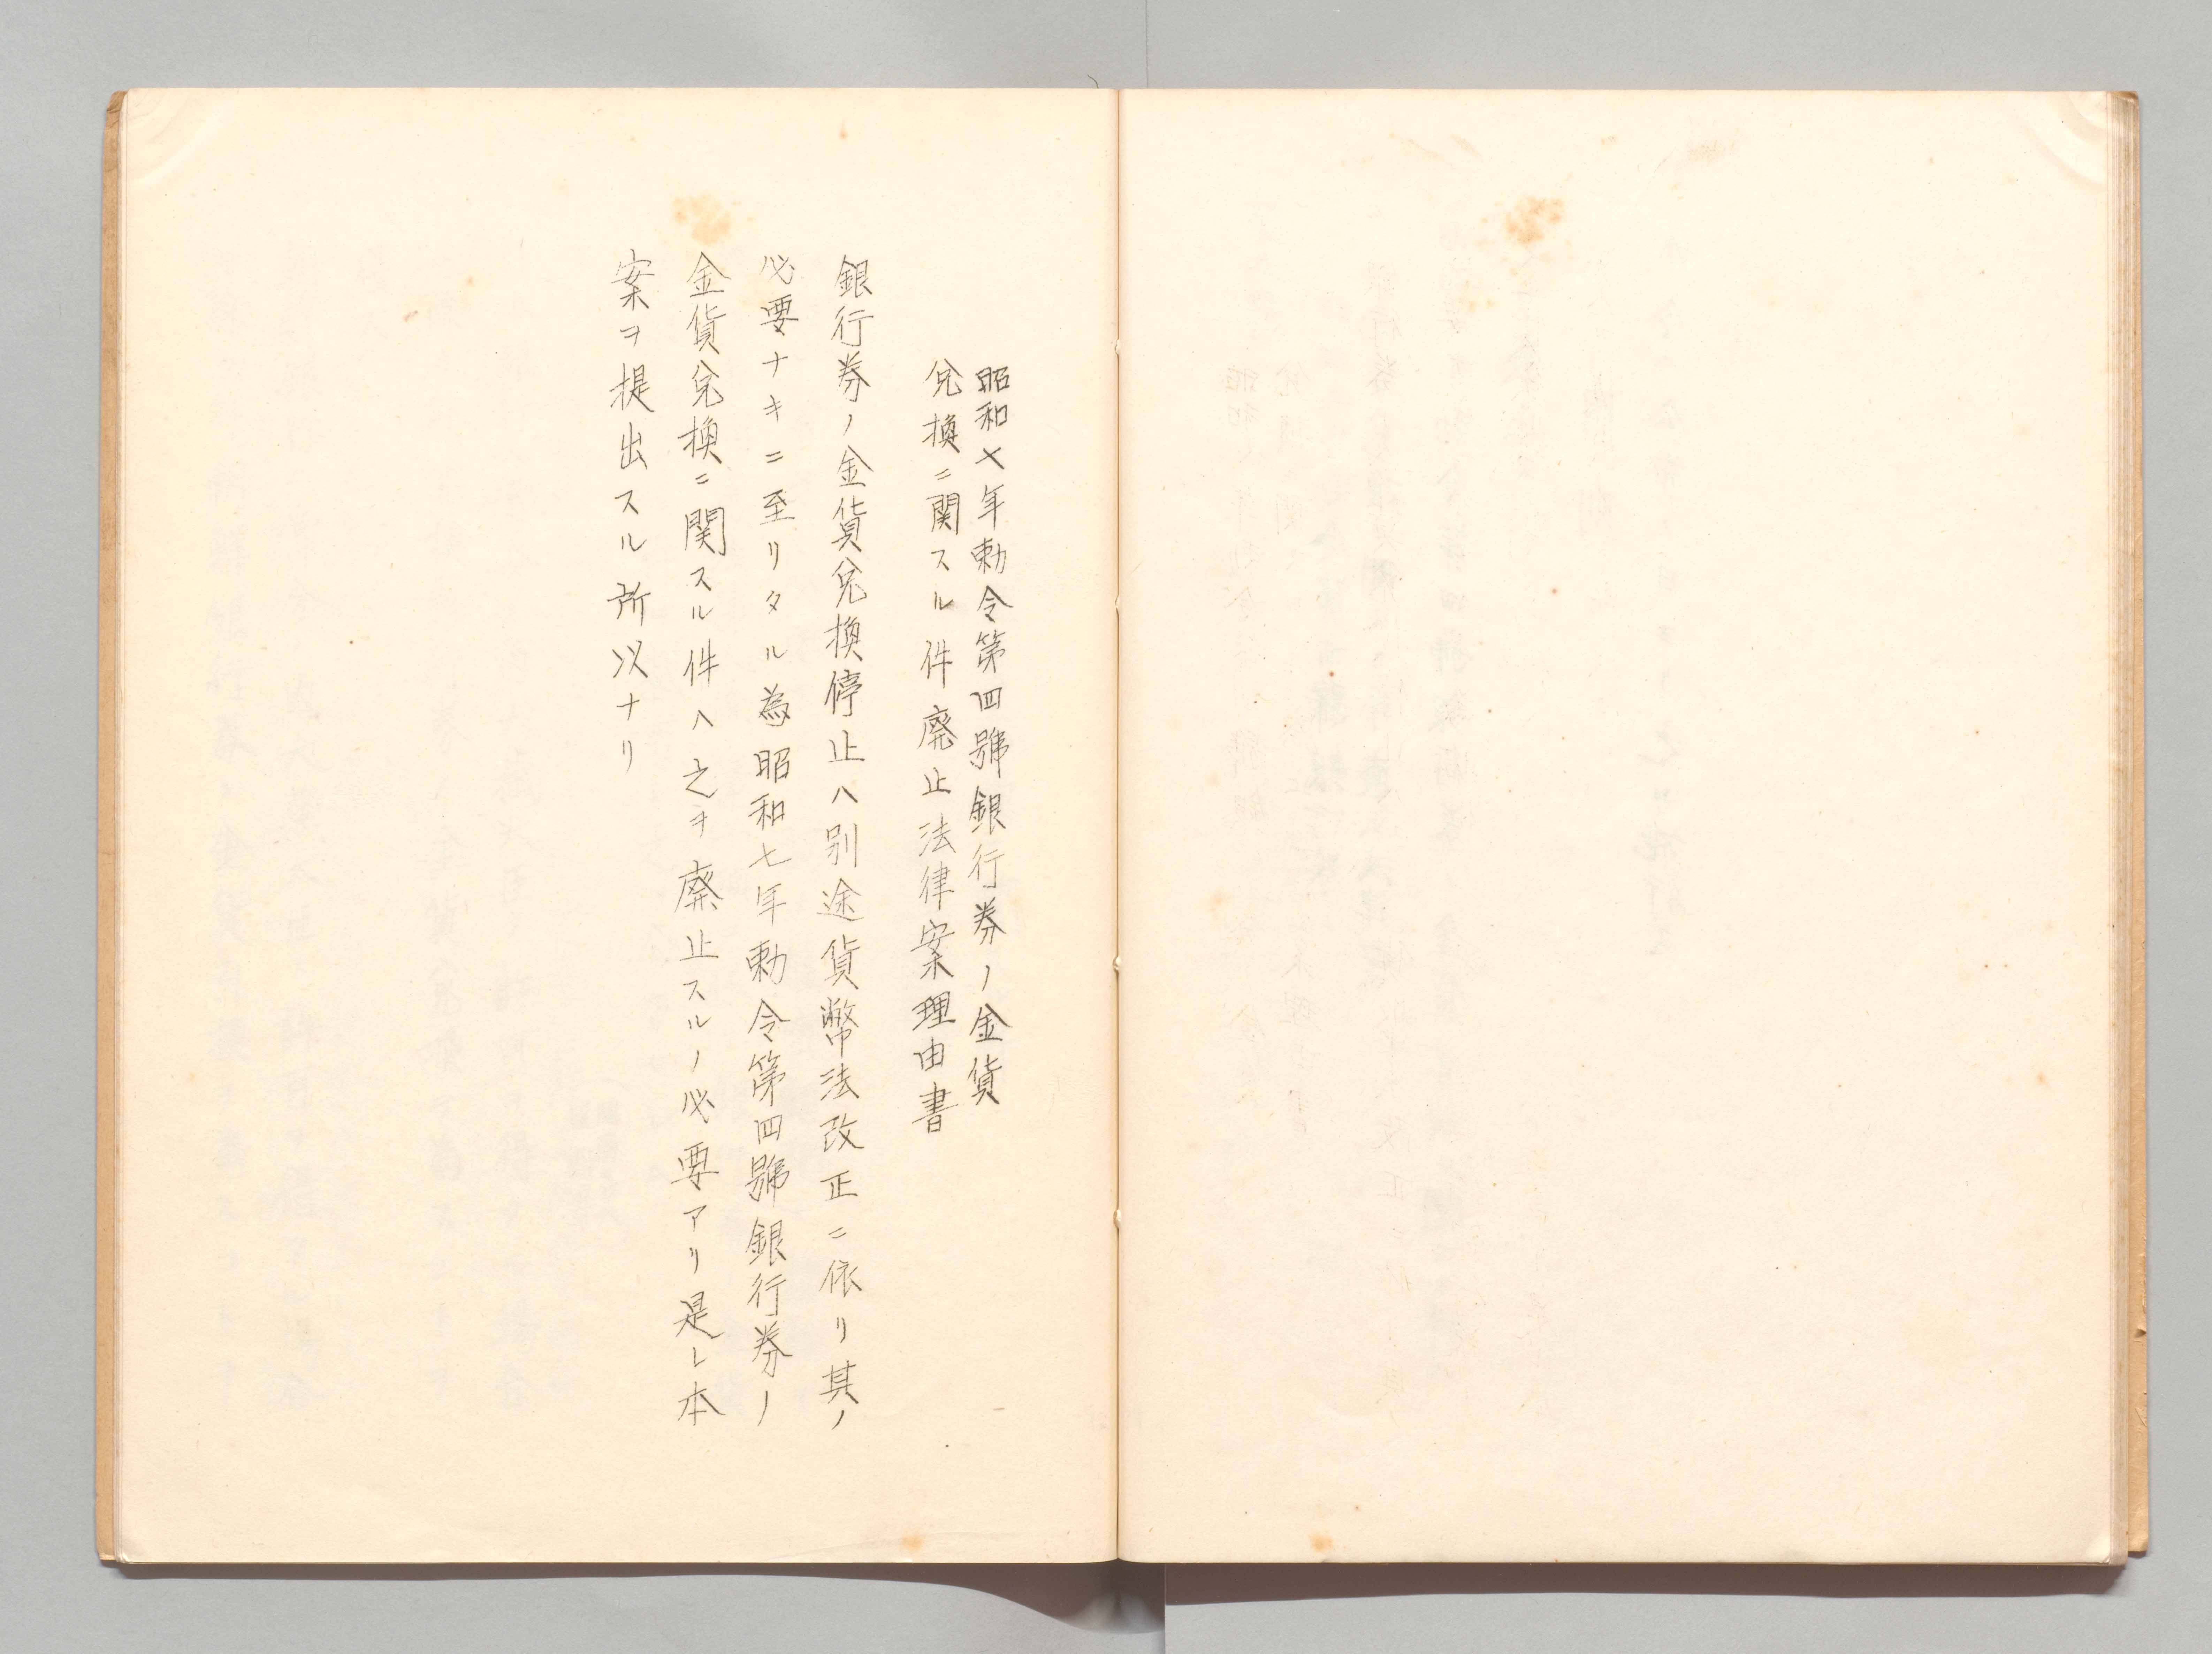 昭和七年勅令第四號銀行券ノ金貨
兌換ニ関スル件廃止法律案理由書
銀行券ノ金貨兌換停止ハ別途貨幣法改正ニ依リ其ノ
必要ナキニ至リタル為昭和七年勅令第四號銀行券ノ
金貨兌換ニ関スル件ハ之ヲ廃止スルノ必要アリ是レ本
案ヲ提出スル所以ナリ